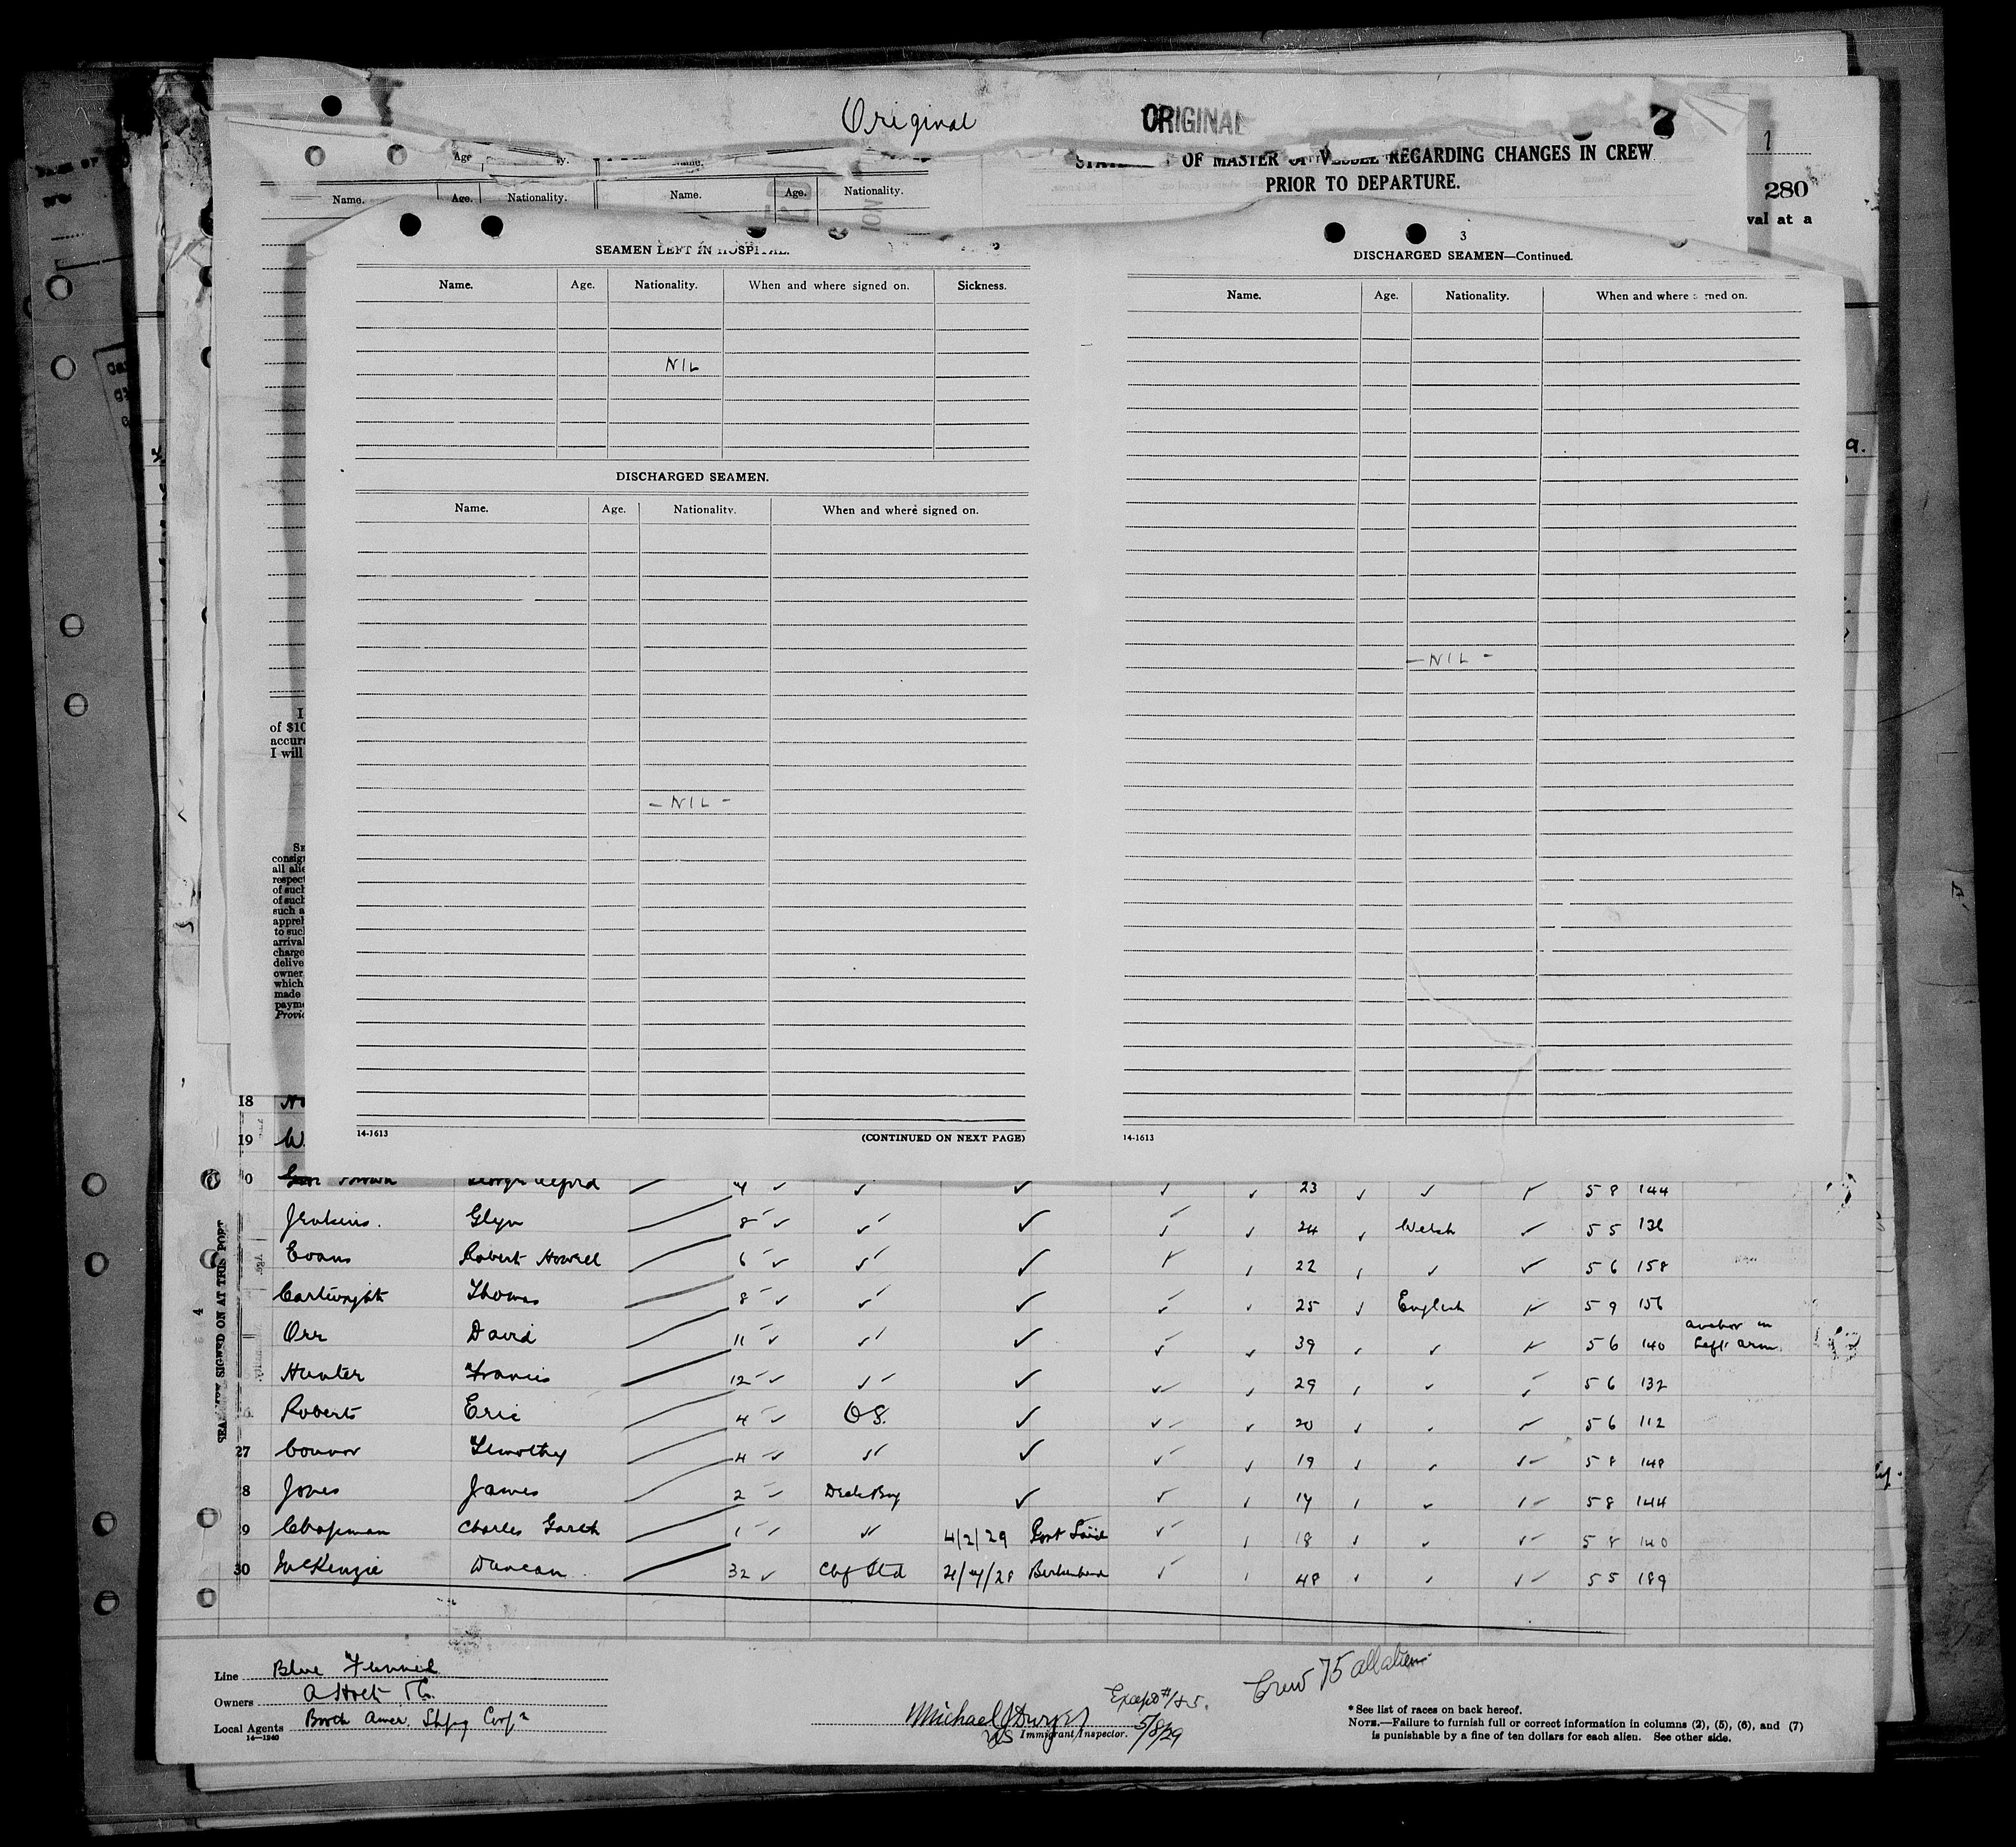 Original ORIGINAL 7
OF MASTER OF VESSEL REGARDING CHANGES IN CREW
PRIOR TO DEPARTURE.
1
280
val at a
Age
Name. Age. Nationality. Name. Age. Nationality.
SEAMEN LEFT IN HOSPITAL.
Name. Age. Nationality. When and where signed on. Sickness.
NIL
DISCHARGED SEAMEN.
Name. Age. Nationality. When and where signed on.
- NIL -
14-1613 (CONTINUED ON NEXT PAGE)
3
DISCHARGED SEAMEN—Continued.
Name. Age. Nationality. When and where med on.
- NIL -
14-1613
I
of $10
accura
I will
SE
consig
all alie
respect
of such
of such
such a
appreh
to such
arrival
charge
delive
owner
which
made
payme
Provid
18
19 W
0 4 23 5 8 144
SIGNED ON AT THIS PORT
4
Jenkins. Glyn 8 24 Welsh 5 5 136
Evans Robert Howell 6 22 5 6 158
Cartwright Thomas 8 25 English 5 9 156
Orr David 11 39 5 6 140 anchor on left arm
Hunter Francis 12 29 5 6 132
Roberts Eric 4 O S. 20 5 6 112
27 Connor Timothy 4 19 5 8 148
8 Jones James 2 Deck Boy 17 5 8 144
9 Chapman Charles Gareth 1 " 4/2/29 Port Said 18 5 8 140
30 McKenzie Duncan 32 Chf Std Birkenhead 48 5 5 189
Line Blue Funnel
Owners A Holt & Co.
Local Agents Booth Amer. Shpg Corpn
14—1240
Michael J Dwyer
US Immigrant Inspector. 5/8/29
Except # 1 & 5.
Crew 75 all aliens
* See list of races on back hereof.
NOTE.—Failure to furnish full or correct information in columns (2), (5), (6), and (7)
is punishable by a fine of ten dollars for each alien. See other side.